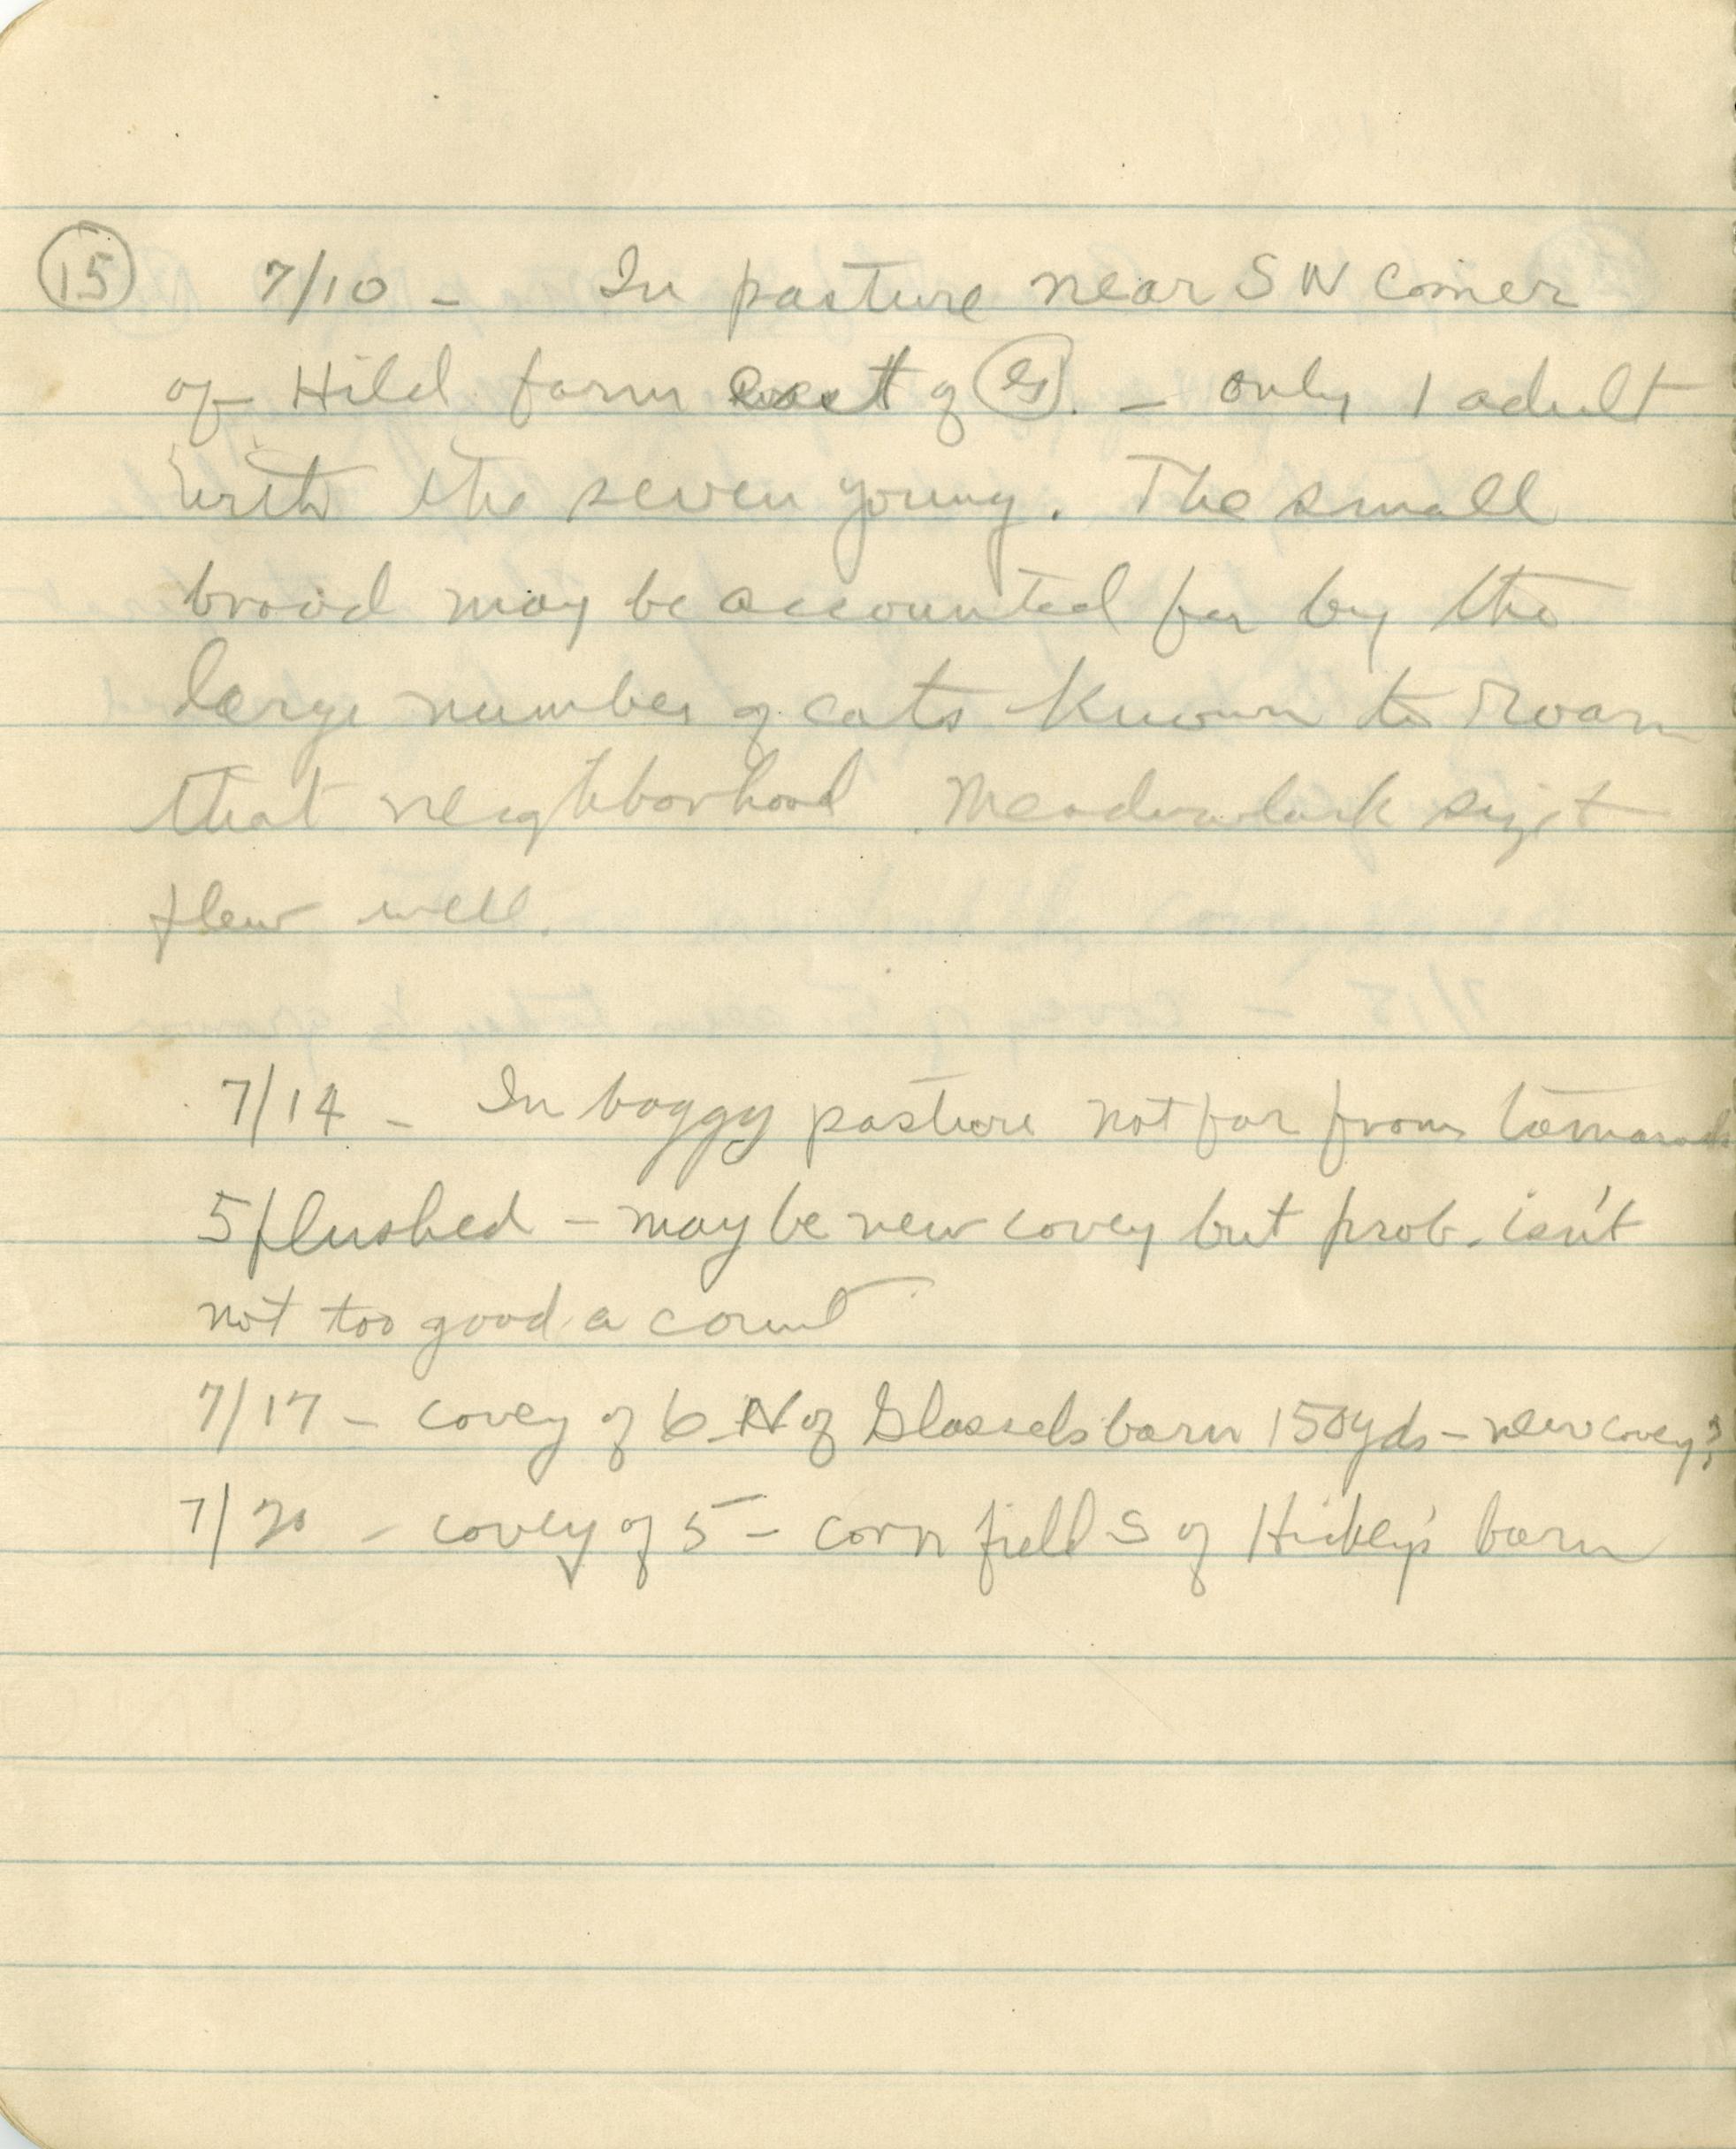 (15) 7/10 - In pasture near SW Corner
of Hild farm east of - only 1 adult
with the seven young. The small
brood may be accounted for by the
large number of cats known to roam
that neighborhood. Meadowlark size &
flew well.
7/14 - In boggy pasture not far from tamarack
5 flushed - may be new covey but prob. isn't
not too good a count
7/17 - covey of 6 N of barn 150 yds - new covey?
7/20 - covey of 5 - corn field S of Hickey's barn